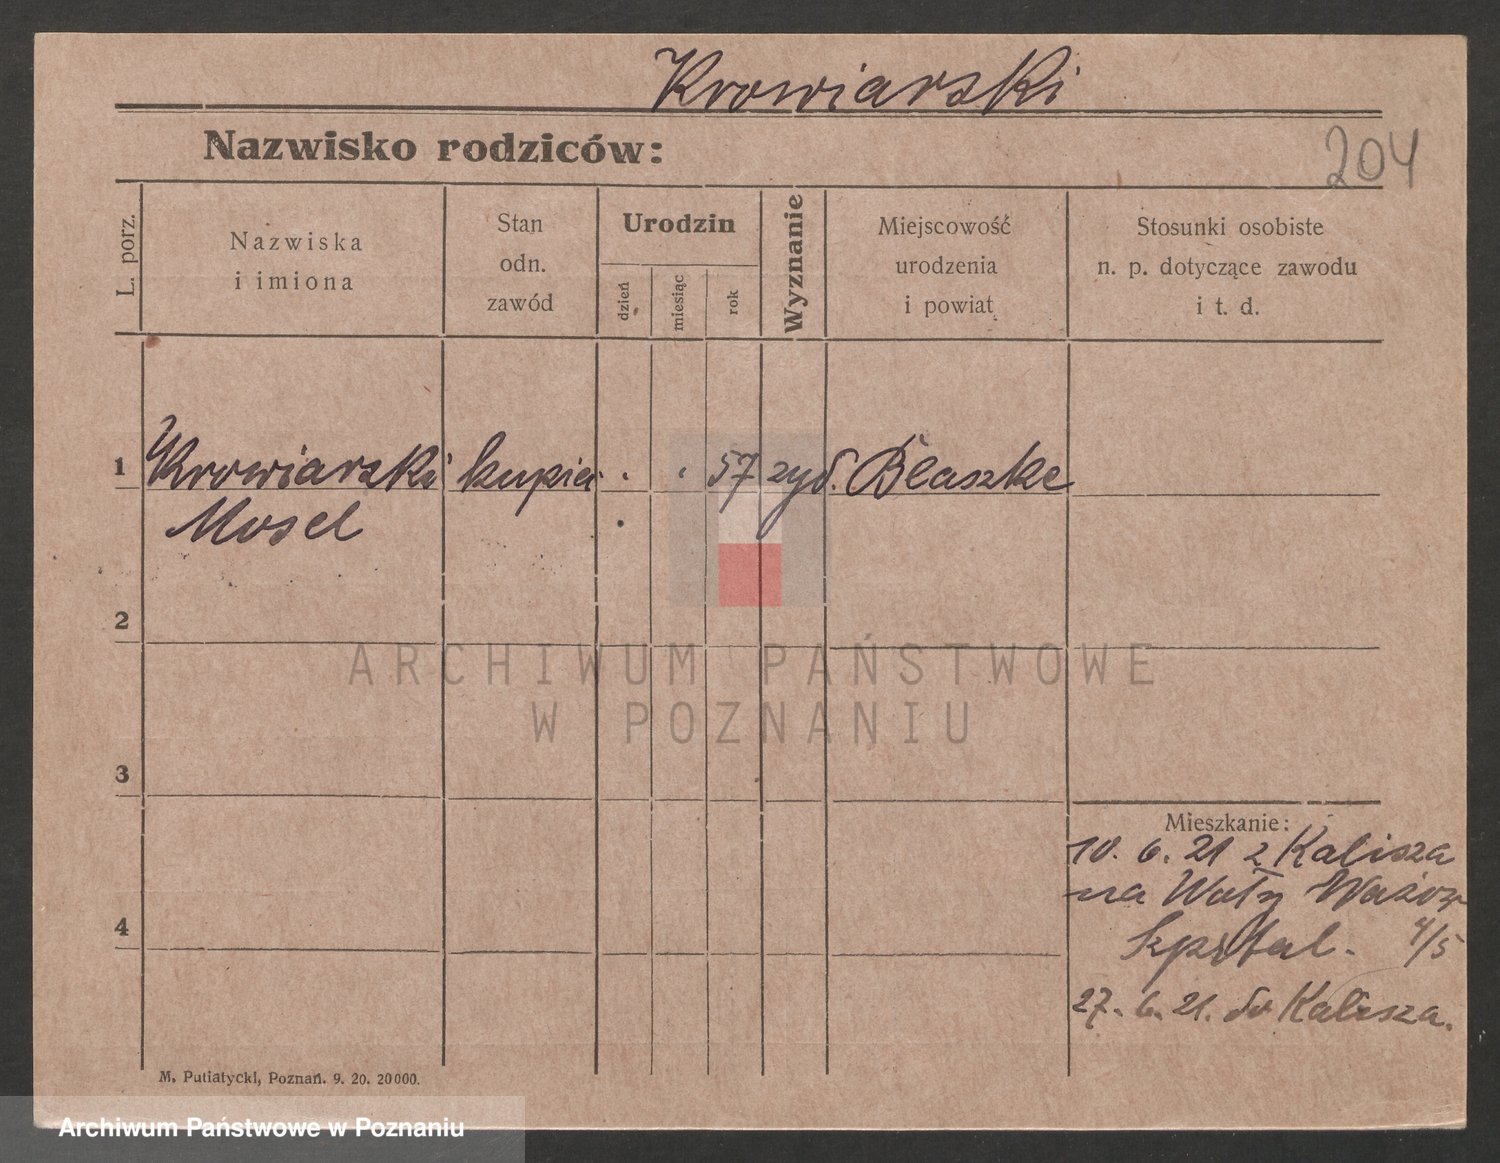 Krowiarski
Nazwisko rodziców:
204
L. porz.
Nazwiska
i imiona
Stan
odn.
zawód
Urodzin
dzień
miesiąc
rok
Wyznanie
Miejscowość
urodzenia
i powiat
Stosunki osobiste
n. p. dotyczące zawodu
i t. d.
1
Krowiarski kupiec 57 żyd. Blaszke
Mosel
2
3
4
Mieszkanie:
10. 6. 21 z Kalisza
na Wały
Szpital. 4/5
27. 6. 21. do Kalisza.
M. Putiatycki, Poznań. 9. 20. 20000.
ARCHIWUM PAŃSTWOWE
W POZNANIU
Archiwum Państwowe w Poznaniu